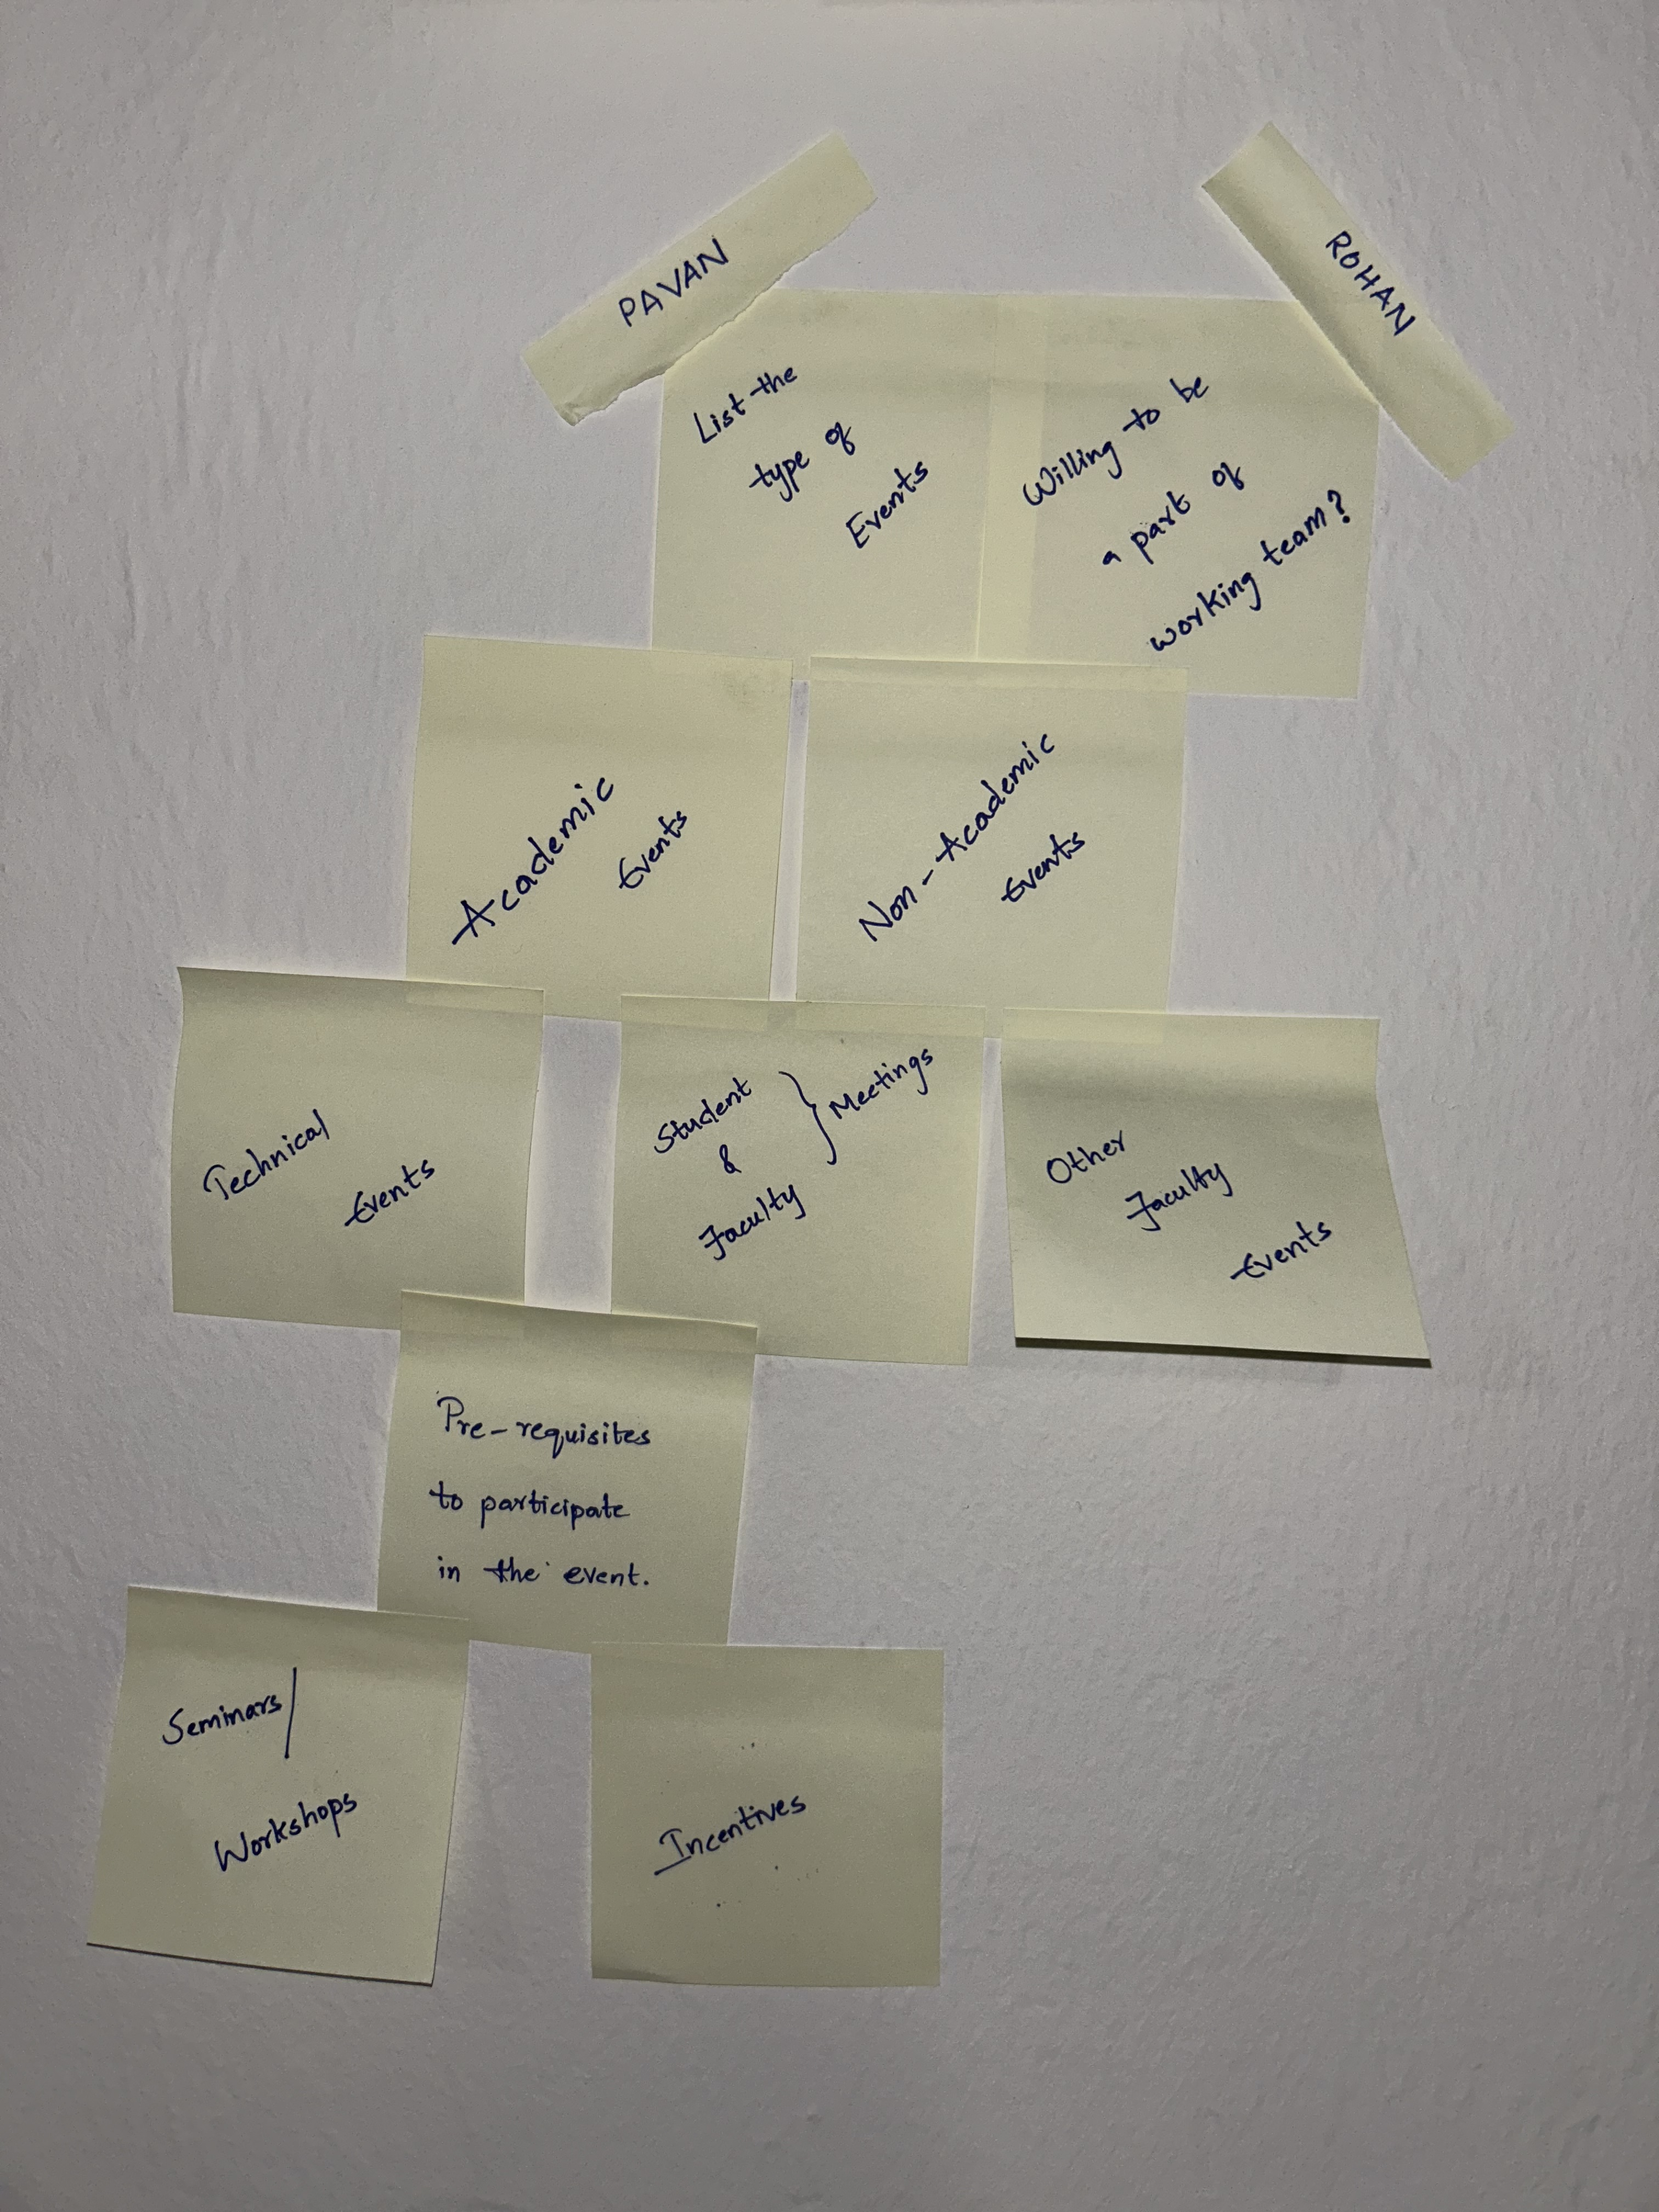 PAVAN
ROHAN
List the
type of
Events
Willing to be
a part of
working team?
Academic
Events
Non-Academic
Events
Technical
Events
Student
&
Faculty
} Meetings
Other
Faculty
Events
Pre-requisites
to participate
in the event.
Seminars/
Workshops
Incentives